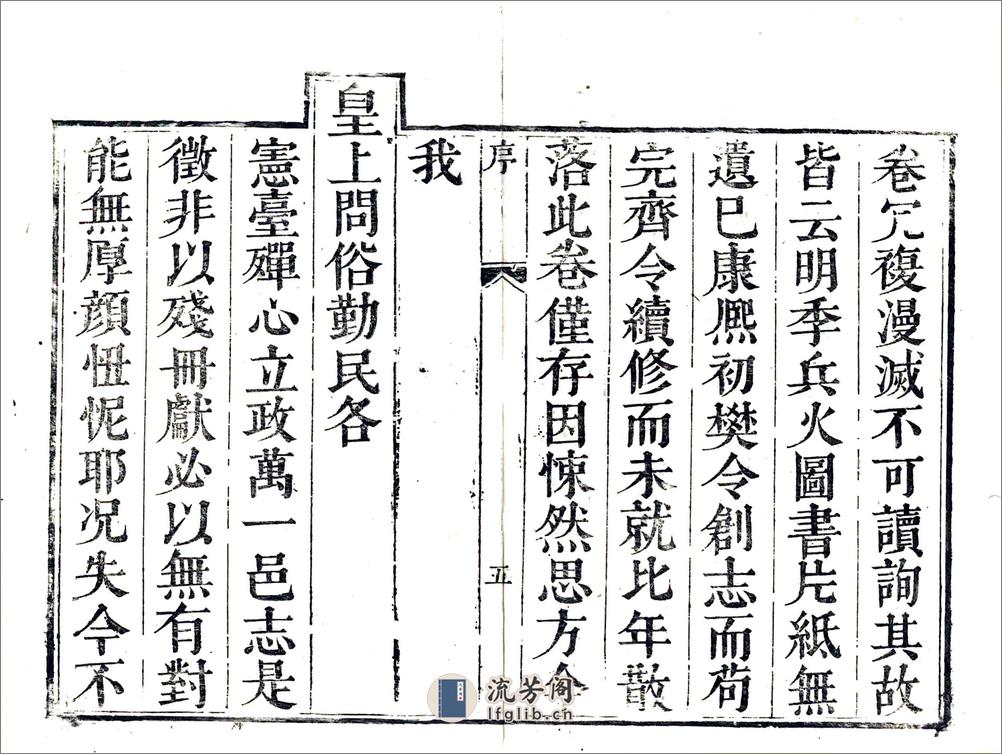 卷冗複漫滅不可讀詢其故
皆云明季兵火圖書片紙無
遺已康熈初樊令創志而苟
完齊令續修而未就比年散
落此卷僅存因悚然思方今
序
五
我
皇上問俗勤民各
憲臺殫心立政萬一邑志是
徵非以殘冊獻必以無有對
能無厚顔忸怩耶况失今不
流芳阁
lfglib.cn